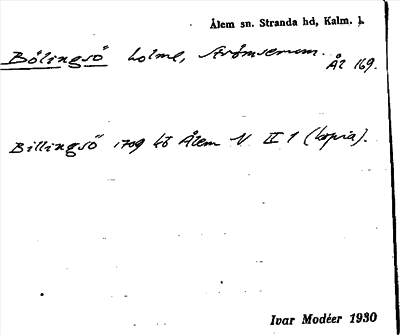 Ålem sn. Stranda hd, Kalm. l.
Bölingsö holme, Strömserum.
ÅL 169.
Billingsö 1709 kb Ålem N II 1 (kopia).
Ivar Modéer 1930